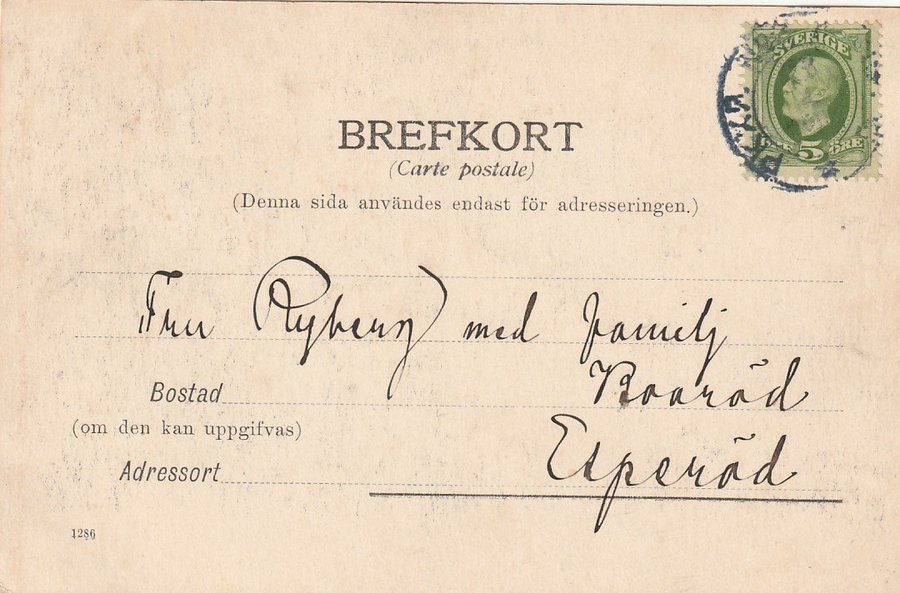 SVERIGE
5 ÖRE
BREFKORT
(Carte postale)
(Denna sida användes endast för adresseringen.)
Fru Ryberg med familj
Boaröd
Bostad
(om den kan uppgifvas)
Esperöd
Adressort
1286